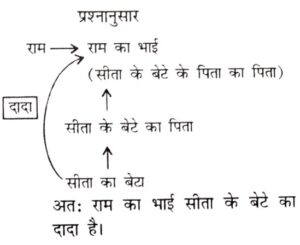 प्रश्नानुसार
राम → राम का भाई
(सीता के बेटे के पिता का पिता)
दादा
सीता के बेटे का पिता
सीता का बेटा
अतः राम का भाई सीता के बेटे का
दादा है।